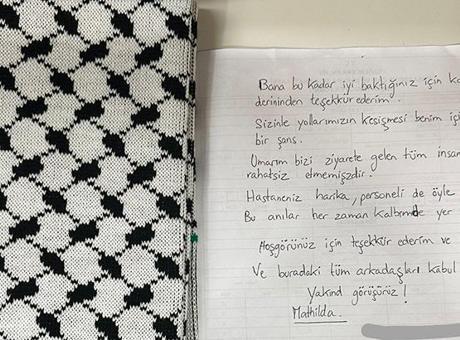 Bana bu kadar iyi baktığınız için
derininden teşekkür ederim.
Sizinle yollarımızın kesişmesi benim
bir şans.
Umarım bizi ziyarete gelen tüm
rahatsız etmemişzdir.
Hastaneniz harika, personeli de öyle
Bu anılar her zaman kalbimde yer
Hoşgörünüz için teşekkür ederim ve
Ve buradaki tüm arkadaşları kabul
Yakınd görüşürüz!
Mathilda.